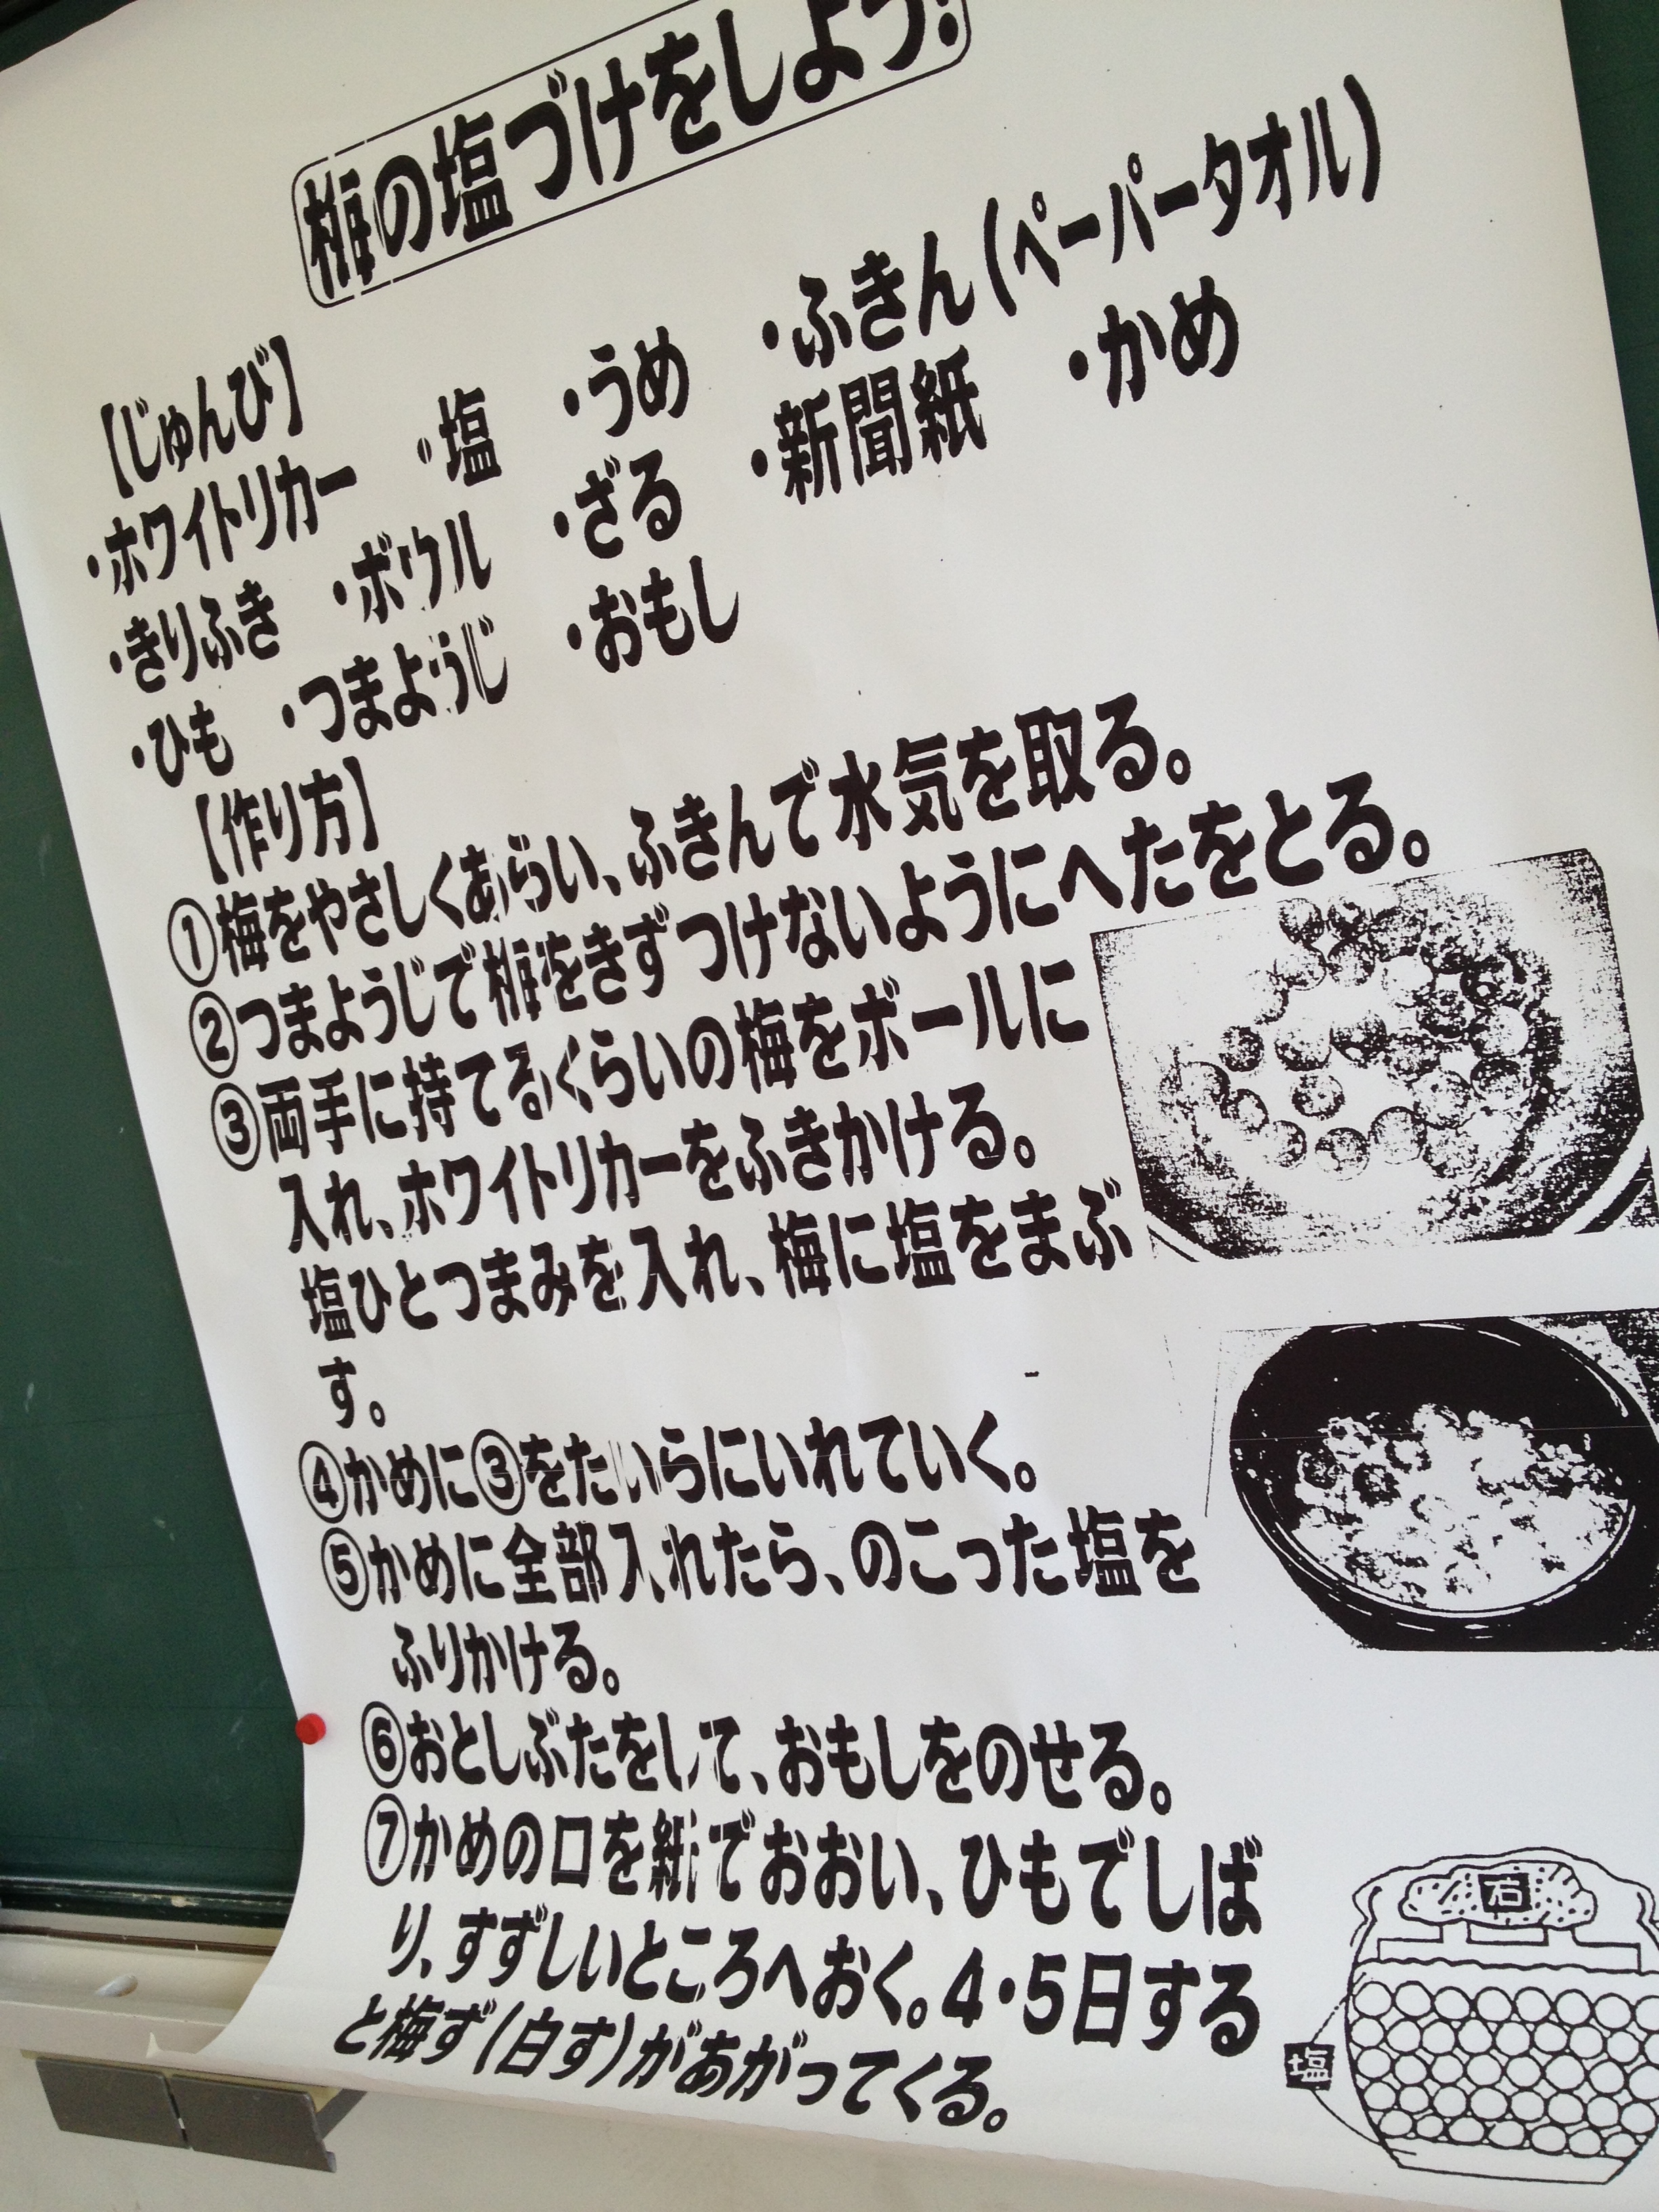 梅の塩づけをしよう!
【じゅんび】
・ホワイトリカー ・塩 ・うめ ・ふきん(ペーパータオル)
・きりふき ・ボウル ・ざる ・新聞紙 ・かめ
・ひも ・つまようじ ・おもし
【作り方】
①梅をやさしくあらい、ふきんで水気を取る。
②つまようじで梅をきずつけないようにへたをとる。
③両手に持てるくらいの梅をボールに
入れ、ホワイトリカーをふきかける。
塩ひとつまみを入れ、梅に塩をまぶ
す。
④かめに③をたいらにいれていく。
⑤かめに全部入れたら、のこった塩を
ふりかける。
⑥おとしぶたをして、おもしをのせる。
⑦かめの口を紙でおおい、ひもでしば
り、すずしいところへおく。4・5日する
と梅ず(白す)があがってくる。
石
塩